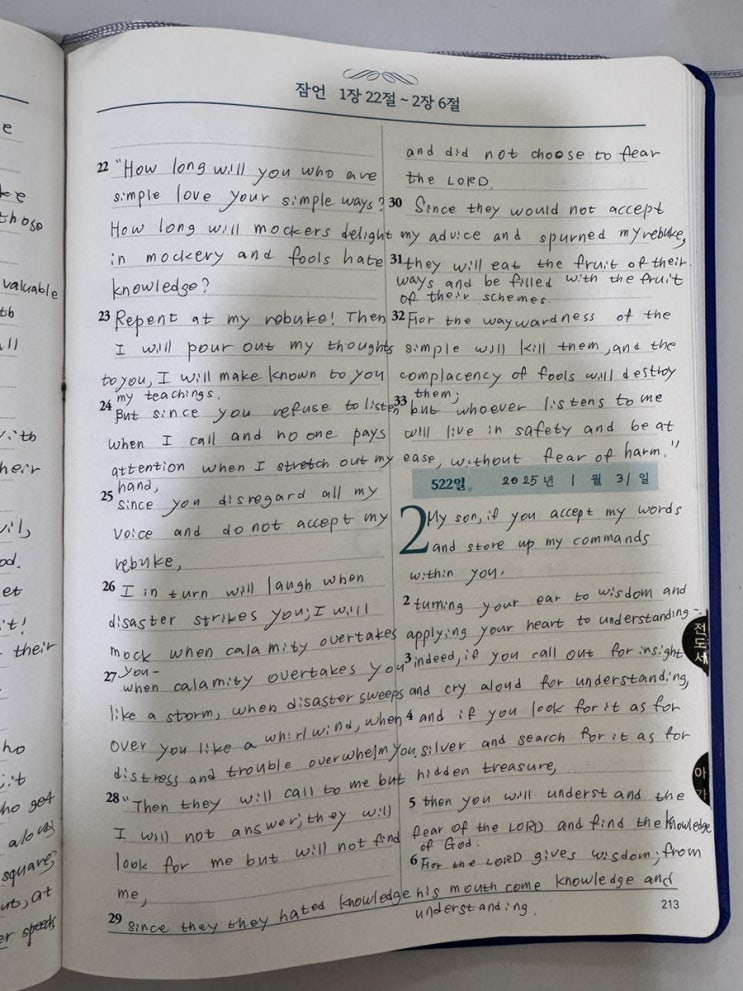 e
ke
those
valuable
th
all
with
heir
vil,
od.
et
it!
their
ho
it
ho get
aloud
square;
out, at
er speeds
잠언 1장 22절 ~ 2장 6절
22 "How long will you who are
simple love your simple ways?
How long will mockers delight
in mockery and fools hate
knowledge?
23 Repent at my rebuke! Then
I will pour out my thoughts
to you, I will make known to you
my teachings.
24 But since you refuse to listen
when I call and no one pays
attention when I stretch out my
hand,
25 since you disregard all my
voice and do not accept my
rebuke,
26 I in turn will laugh when
disaster strikes you; I will
mock when calamity overtakes
you-
27 when calamity overtakes you
like a storm, when disaster sweeps
over you like a whirlwind, when
distress and trouble overwhelm you.
28 "Then they will call to me but
I will not answer; they will
look for me but will not find
me,
29 since they they hated knowledge
and did not choose to fear
the LORD.
30 Since they would not accept
my advice and spurned my rebuke,
31 they will eat the fruit of their
ways and be filled with the fruit
of their schemes.
32 For the waywardness of the
simple will kill them, and the
complacency of fools will destroy
them;
33 but whoever listens to me
will live in safety and be at
ease, without fear of harm."
522일。 2025년 1월 31일
2 My son, if you accept my words
and store up my commands
within you.
2 turning your ear to wisdom and
applying your heart to understanding-
3 indeed, if you call out for insight
and cry aloud for understanding,
4 and if you look for it as for
silver and search for it as for
hidden treasure,
5 then you will understand the
fear of the LORD and find the knowledge
of God.
6 For the LORD gives wisdom; from
his mouth come knowledge and
understanding.
전도서
아가
213